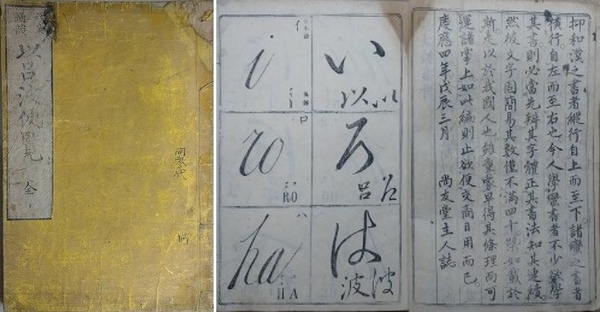 以呂波便覧 全
い
以
i
ろ
呂
ro
ロ
RO
は
波
ha
ハ
HA
抑和漢之書者縱行自上而至下諸蠻之書者
横行自左而至右也今人學蠻書者不少欲學
其書則必當先辨其字體正其書法知其連續
然彼文字固簡易其數僅不滿四十 如載於
斯夫以於我國人也雖童蒙早得其條理而可
運諸掌上如此編則止欲便交商日用而已
慶應四年戊辰三月 尚友堂主人誌